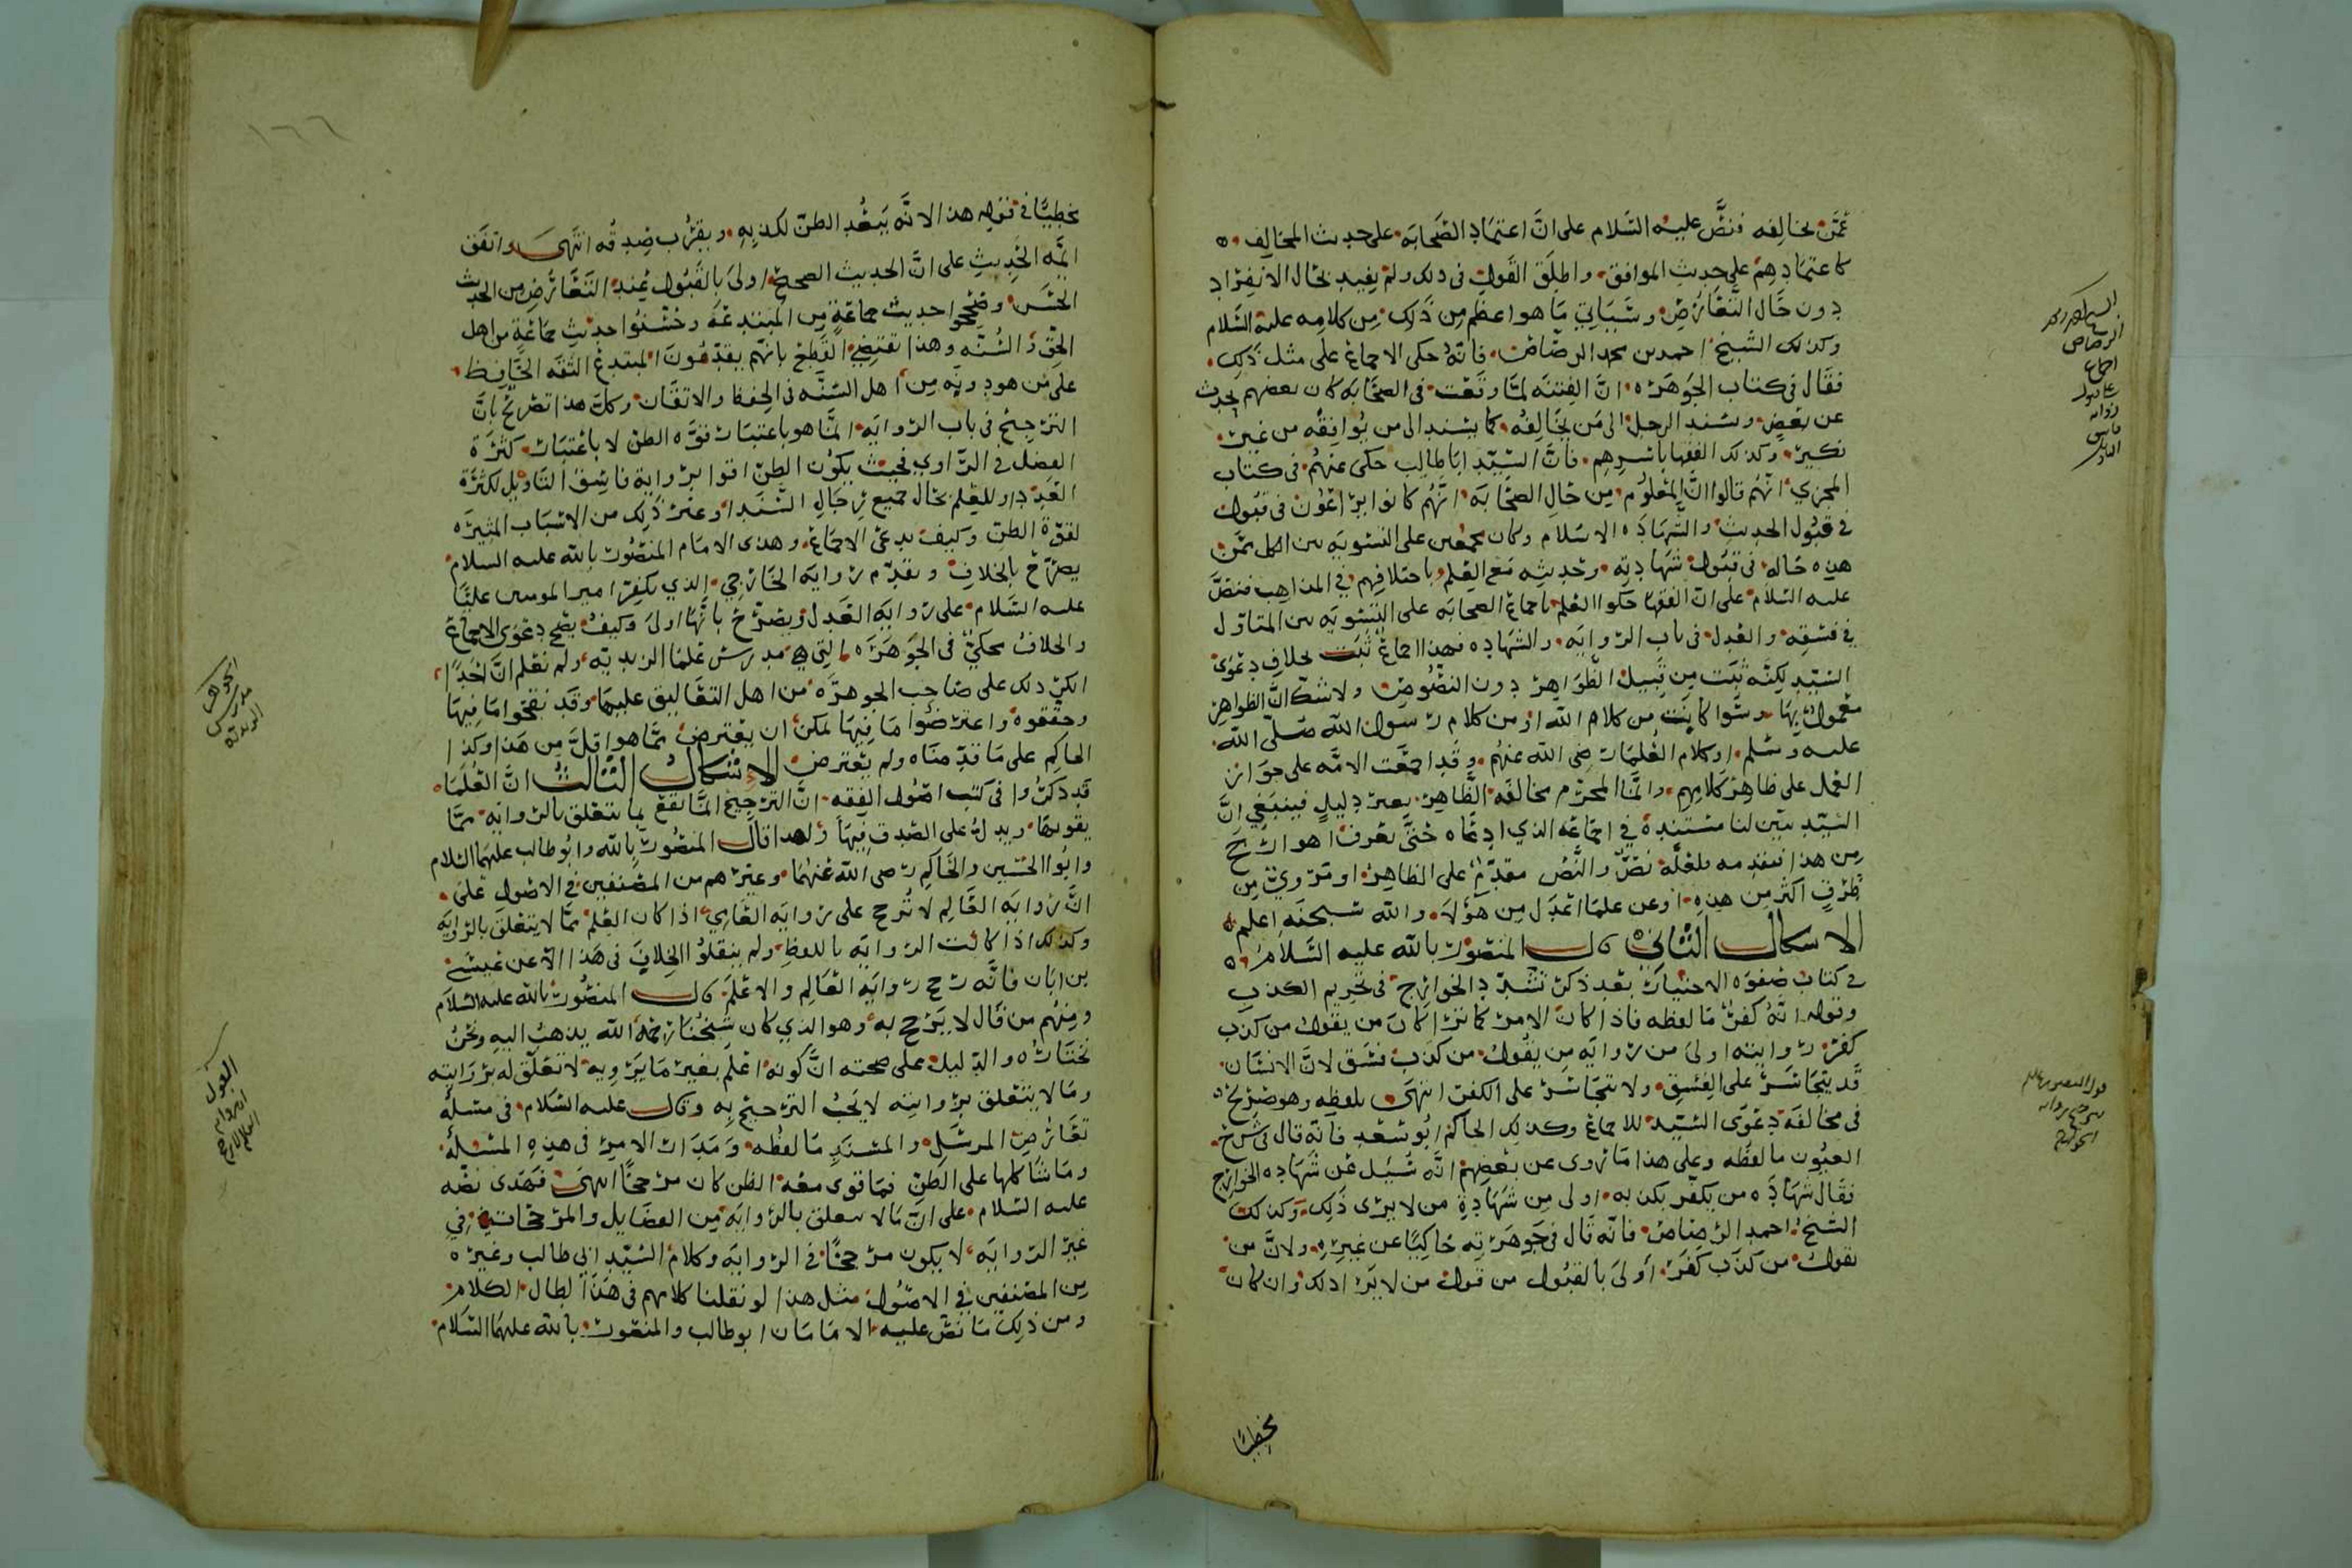 عمن يخالفه فنص عليه السلام على ان اعتماد الصحابه على حديث المخالف
كاعتمادهم على حديث الموافق واطلق القول في ذلك ولم يفيد بحال الانفراد
دون حال التعارض وسياتي ما هو اعظم من ذلك من كلامه عليه السلام
وكذلك الشيخ احمد بن محمد الرصاص فانه حكى الاجماع على مثل ذلك
فقال في كتاب الجوهره ان الفتنه لما وقعت في الصحابه كان بعضهم يحدث
عن بعض ويسند الرجل الى من يخالفه كما يسند الى من يوافقه من غير
نكير وكذلك الفقها باسرهم فان السيد ابا طالب حكى عنهم في كتاب
المجزي انهم قالوا ان المعلوم من حال الصحابه انهم كانوا يراعون في قبول
في قبول الحديث والشهاده الاسلام وكان مجمعين على التسويه بين الكل ممن
هذه حاله في قبول شهادته وحديثه مع العلم باختلافهم في المذاهب فنص
عليه السلام على ان الفقها حكوا العلم باجماع الصحابه على التسويه بين المتاول
في فسقه والعدل في باب الروايه والشهاده فهذا اجماع ثبت بخلاف دعوى
السيد لكنه ثبت من قبيل الظواهر دون النصوص ولا شك ان الظواهر
معمول بها وسوا كانت من كلام الله او من كلام رسول الله صلى الله
عليه وسلم او كلام العلما رضي الله عنهم وقد اجمعت الامه على جواز
العمل على ظاهر كلامهم وانما المحرم مخالفه الظاهر بغير دليل فينبغي ان
السيد يبين لنا مستنده في اجماعه الذي ادعاه حتى نعرف اهو ارجح
من هذا فنقدمه فلعله نص والنص مقدم على الظاهر او مروي من
طرق اكثر من هذه او عن علما اعدل من هولا والله سبحنه اعلم
الاشكال الثاني قال المنصور بالله عليه السلام
في كتاب صفوه الاختيار بعد ذكر تشدد الخوارج في تحريم الكذب
وقوله انه كفر ما لفظه فاذا كان الامر كما ترا كان من يقول من كذب
كفر روايته اولى من روايه من يقول من كذب فسق لان الانسان
قد يتجاسر على الفسق ولا يتجاسر على الكفر انتهى بلفظه وهو صريح
في مخالفه دعوى السيد للاجماع وكذلك الحاكم ابو سعد فانه قال في شرح
العيون ما لفظه وعلى هذا ما روى عن بعضهم انه سئل عن شهاده الخوارج
فقال شهاده من يكفر بكذبه اولى من شهادة من لا يرى ذلك وكذلك
الشيخ احمد الرصاص فانه قال في جوهرته حاكيا عن غيره ولان من
يقول من كذب كفر اولى بالقبول من قول من لا يرا ذلك وان كان
مخطيا
الرصاص
اجماع
قول المنصور بالله
الخوارج
١٦٦
مخطيا في قوله هذا لانه يبعد الظن لكذبه ويقرب صدقه انتهى واتفق
ايمه الحديث على ان الحديث الصحيح اولى بالقبول عند التعارض من الحديث
الحسن وصححوا حديث جماعة من المبتدعه وحسنوا حديث جماعة من اهل
الحق والسنه وهذا تقتضي القطع بانهم يقدمون المبتدع الثقه الحافظ
على من هو دونه من اهل السنه في الحفظ والاتقان وكل هذا تصريح بان
الترجيح في باب الروايه انما هو باعتبار قوه الظن لا باعتبار كثرة
الفضل في الراوي فحيث يكون الظن اقوا برواية فاسق التاويل لكثرة
العدد او للعلم بحال جميع رجال السند او غير ذلك من الاسباب المثيره
لقوة الظن وكيف يدعى الاجماع وهذا الامام المنصور بالله عليه السلام
يصرح بالخلاف ويقدم روايه الخارجي الذي يكفر امير المومنين عليا
عليه السلام على روايه العدل ويصرح بانها اولى وكيف يصح دعوى الاجماع
والخلاف محكي في الجوهره التي هي مدرس علما الزيديه ولم نعلم ان احدا
انكر ذلك على صاحب الجوهره من اهل التعاليق عليها وقد نقحوا ما فيها
وحققوه واعترضوا ما فيها يمكن ان يعترض مما هو اقل من هذا وكذا
الحاكم على ما قدمناه ولم يعترض الاشكال الثالث ان العلما
قد ذكروا في كتب اصول الفقه ان الترجيح انما يقع بما يتعلق بالروايه مما
يقويها ويدل على الصدق فيها ولهذا قال المنصور بالله وابو طالب عليهما السلام
وابو الحسين والحاكم رضي الله عنهما وغيرهم من المصنفين في الاصول على
ان روايه العالم لا ترجح على روايه العامي اذا كان العلم مما لا يتعلق بالروايه
وكذلك اذا كانت الروايه باللفظ ولم ينقلوا الخلاف في هذا الا عن عيسى
بن ابان فانه رجح روايه العالم والاعلم قال المنصور بالله عليه السلام
ومنهم من قال لا يرجح به وهو الذي كان شيخنا رحمه الله يذهب اليه ونحن
نختاره والدليل على صحته ان كونه اعلم بغير ما يرويه لا تعلق له بروايته
وما لا يتعلق بروايته لا يجب الترجيح به وقال عليه السلام في مسله
تعارض المرسل والمسند ما لفظه ومدار الامر في هذه المسئله
وما شاكلها على الظن فما قوى معه الظن كان مرجحا انتهى فهذى نصه
عليه السلام على ان ما لا يتعلق بالروايه من الفضايل والمرجحات في
غير الروايه لا يكون مرجحا في الروايه وكلام السيد ابي طالب وغيره
من المصنفين في الاصول مثل هذا لو نقلنا كلامهم في هذا لطال الكلام
ومن ذلك ما نص عليه الامامان ابو طالب والمنصور بالله عليهما السلام
الجوهره
مدرس
الزيديه